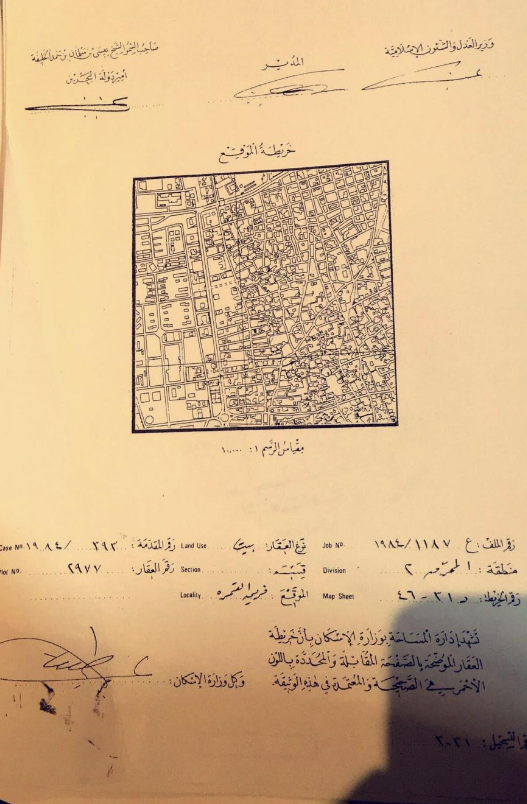 وزير العدل والشئون الإسلامية
المدير
صاحب السمو الشيخ عيسى بن سلمان بن حمد آل خليفة
أمير دولة البحرين
خريطة الموقع
مقياس الرسم ١ : ١٠,٠٠٠
رقم الملف : ع ١١٨٧/١٩٨٤ Job No. نوع العقار : بيت Land Use رقم المقدمة : ٣٩٢/١٩٨٤ Case No.
منطقة : المحرق ٢ Division قسيمة : Section رقم العقار : ٢٩٧٧ Plot No.
رقم الخريطة : د ٣١-٤٦ Map Sheet الموقع : Locality
تشهد إدارة المساحة بوزارة الإسكان بأن خريطة
العقار الموضحة بالصفحة المقابلة والمحددة باللون
الأحمر هي الصحيحة والمعتمدة في هذه الوثيقة.
وكيل وزارة الإسكان :
التسجيل : ٢٠٣١